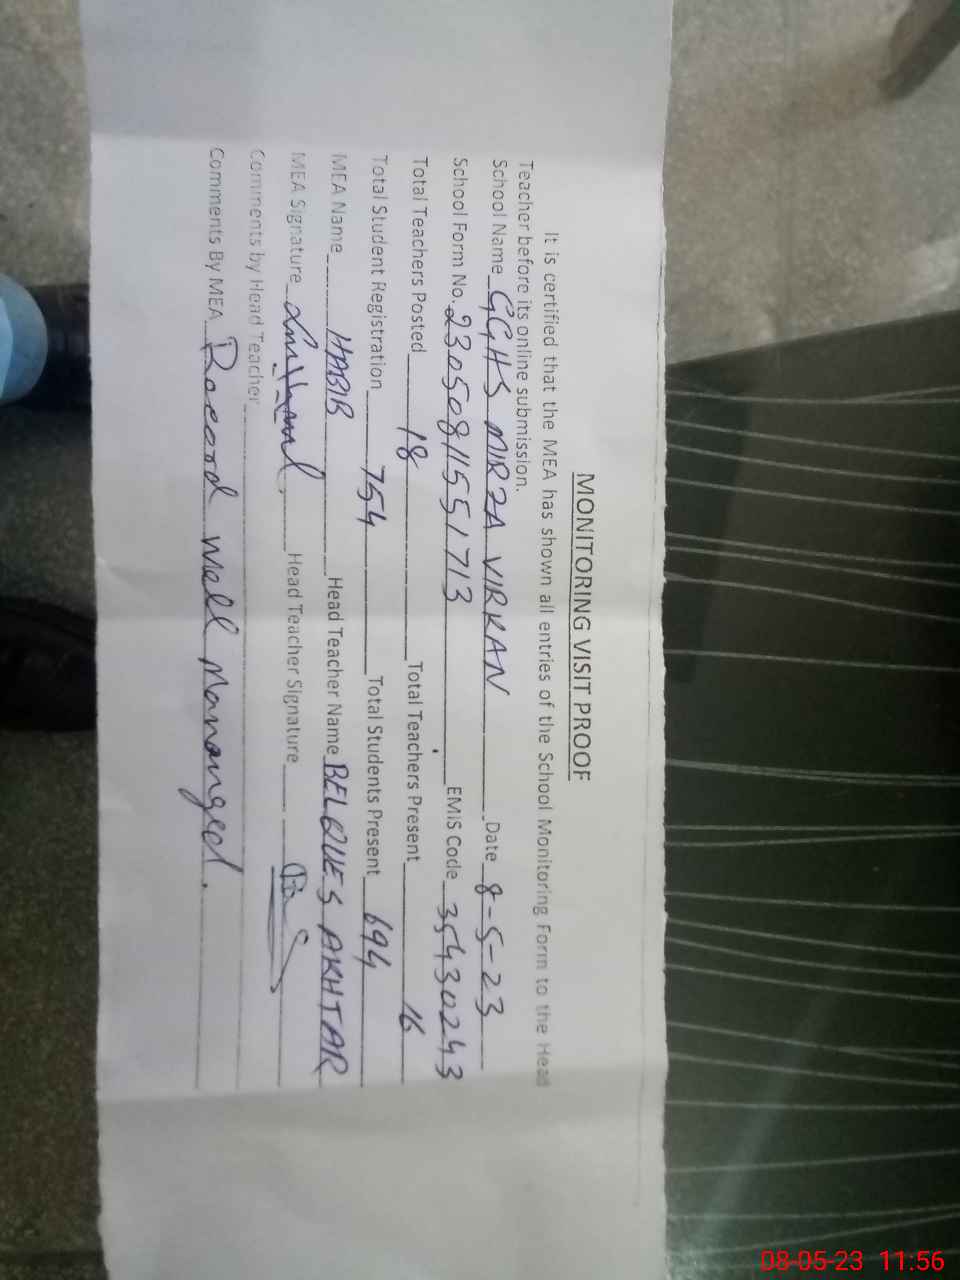 MONITORING VISIT PROOF
It is certified that the MEA has shown all entries of the School Monitoring Form to the Head
Teacher before its online submission.
School Name GGHS MIRZA VIRKAN Date 8-5-23
School Form No. 23050811551713 EMIS Code 35430243
Total Teachers Posted 18 Total Teachers Present 16
Total Student Registration 754 Total Students Present 694
MEA Name HABIB Head Teacher Name BELQUES AKHTAR
MEA Signature Head Teacher Signature
Comments by Head Teacher
Comments By MEA Record well Mananged.
08-05-23 11:56